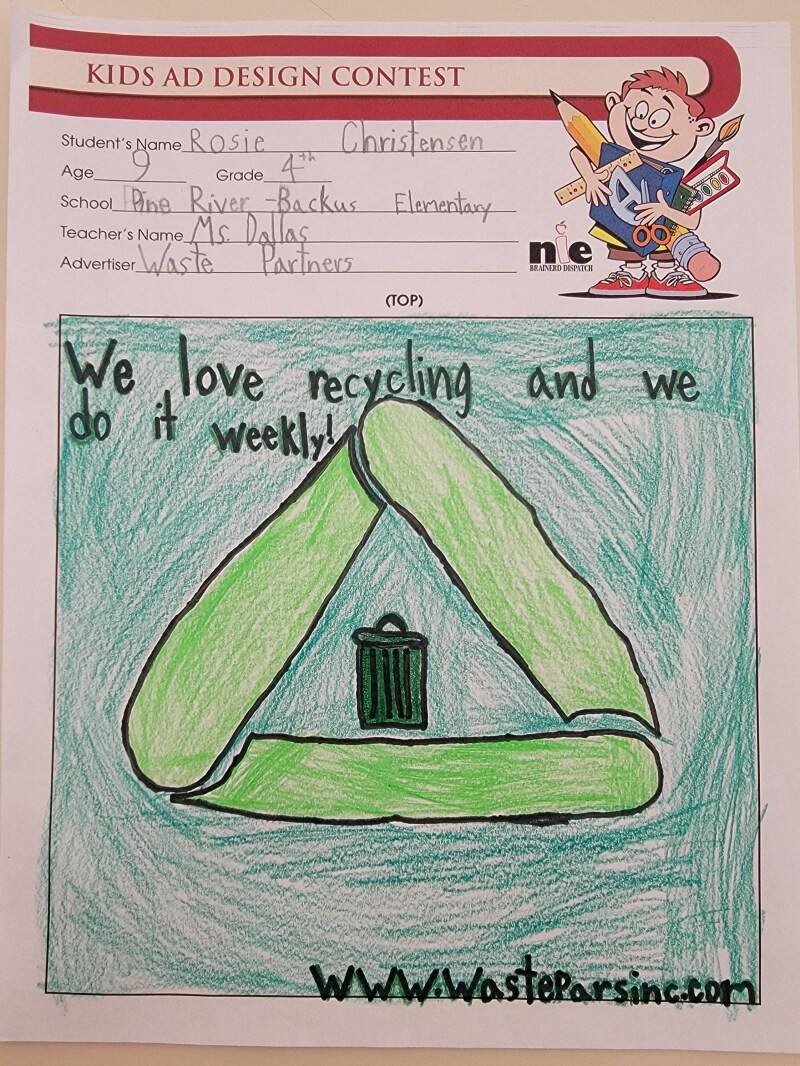 KIDS AD DESIGN CONTEST
Student's Name Rosie Christensen
Age 9 Grade 4th
School Pine River-Backus Elementary
Teacher's Name Ms. Dallas
Advertiser Waste Partners
nie
BRAINERD DISPATCH
(TOP)
We love recycling and we
do it weekly!
www.wasteParsinc.com